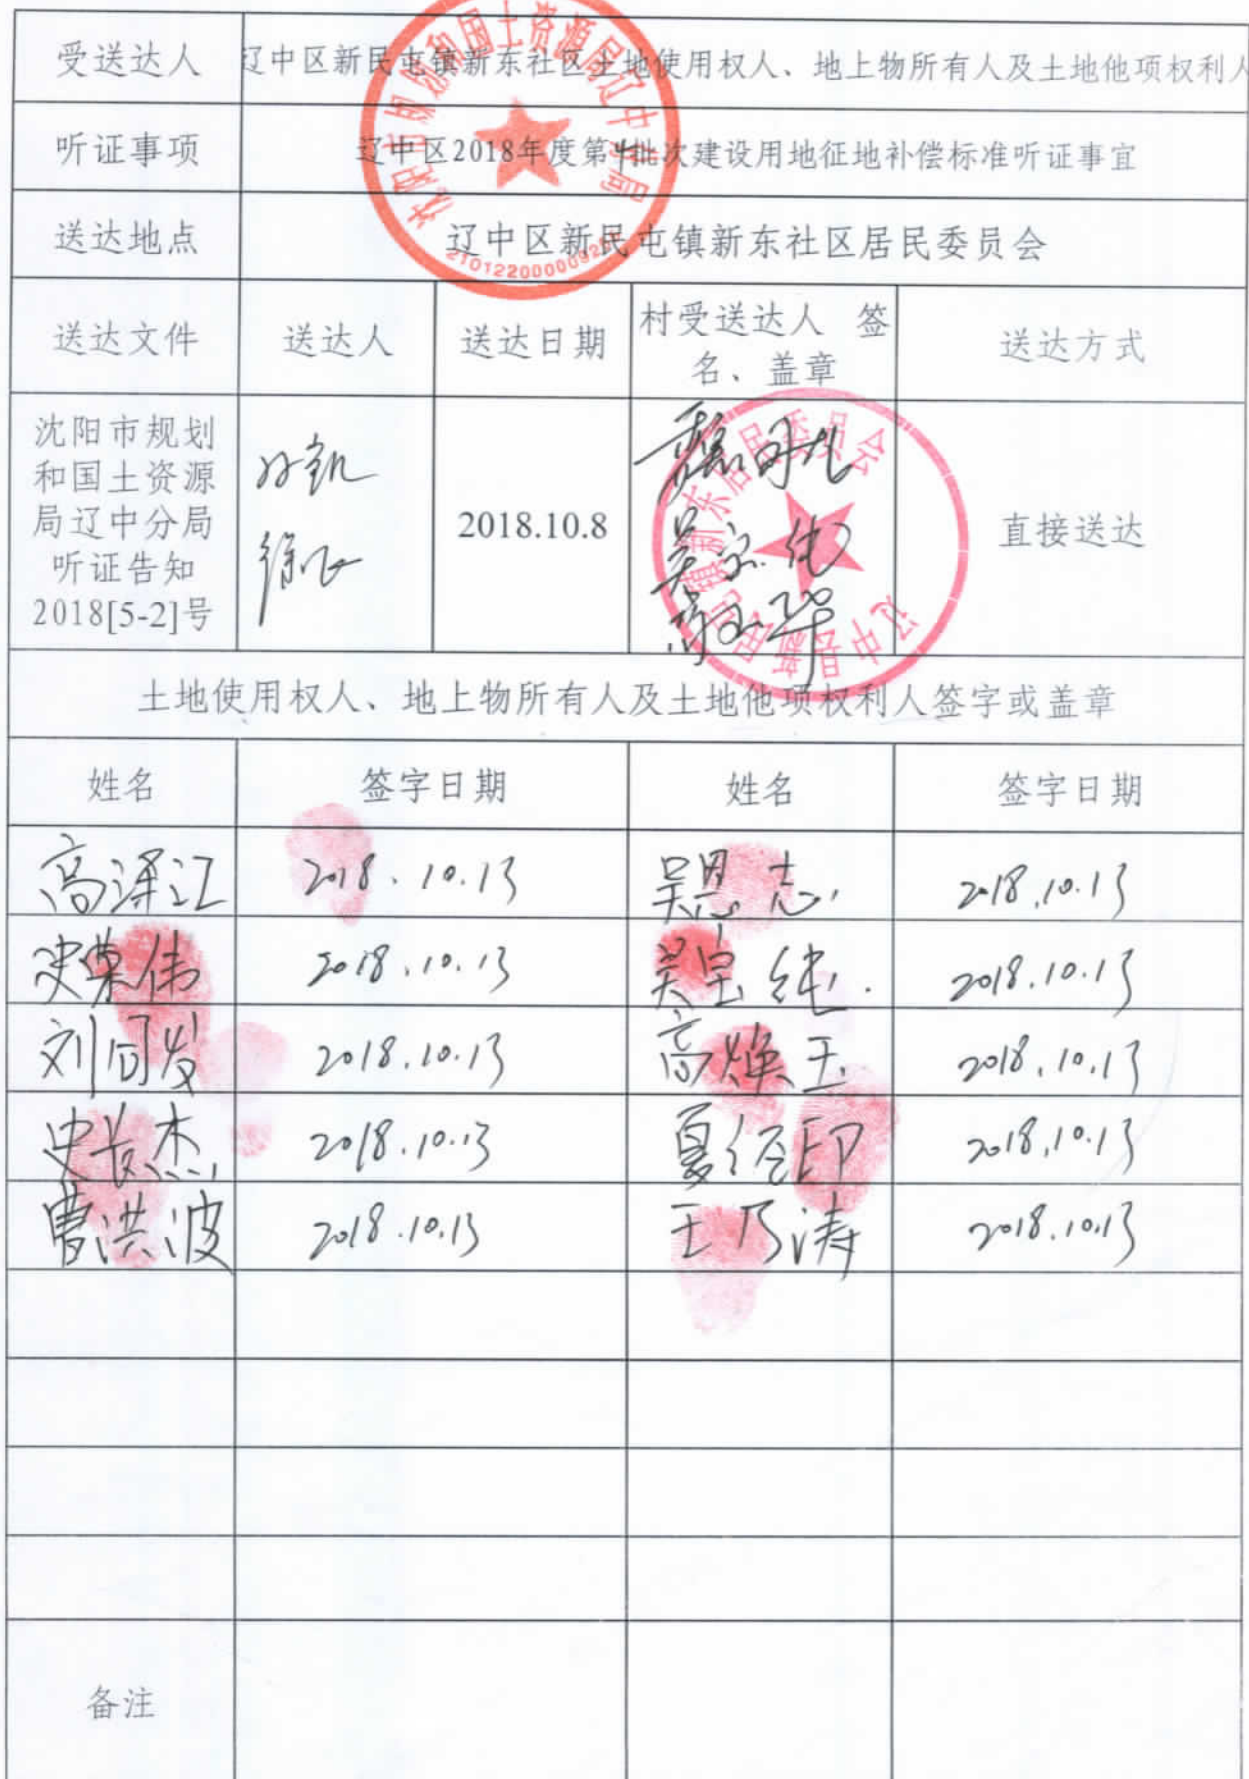 受送达人 辽中区新民屯镇新东社区土地使用权人、地上物所有人及土地他项权利人
听证事项 辽中区2018年度第5批次建设用地征地补偿标准听证事宜
送达地点 辽中区新民屯镇新东社区居民委员会
送达文件 送达人 送达日期 村受送达人 签名、盖章 送达方式
沈阳市规划
和国土资源
局辽中分局
听证告知
2018[5-2]号
2018.10.8
直接送达
土地使用权人、地上物所有人及土地他项权利人签字或盖章
姓名 签字日期 姓名 签字日期
2018.10.13 吴恩志 2018.10.13
史荣伟 2018.10.13 吴宝纯 2018.10.13
刘同发 2018.10.13 高焕玉 2018.10.13
史长杰 2018.10.13 夏经印 2018.10.13
曹洪波 2018.10.13 王乃涛 2018.10.13
备注
沈阳市规划和国土资源局辽中分局